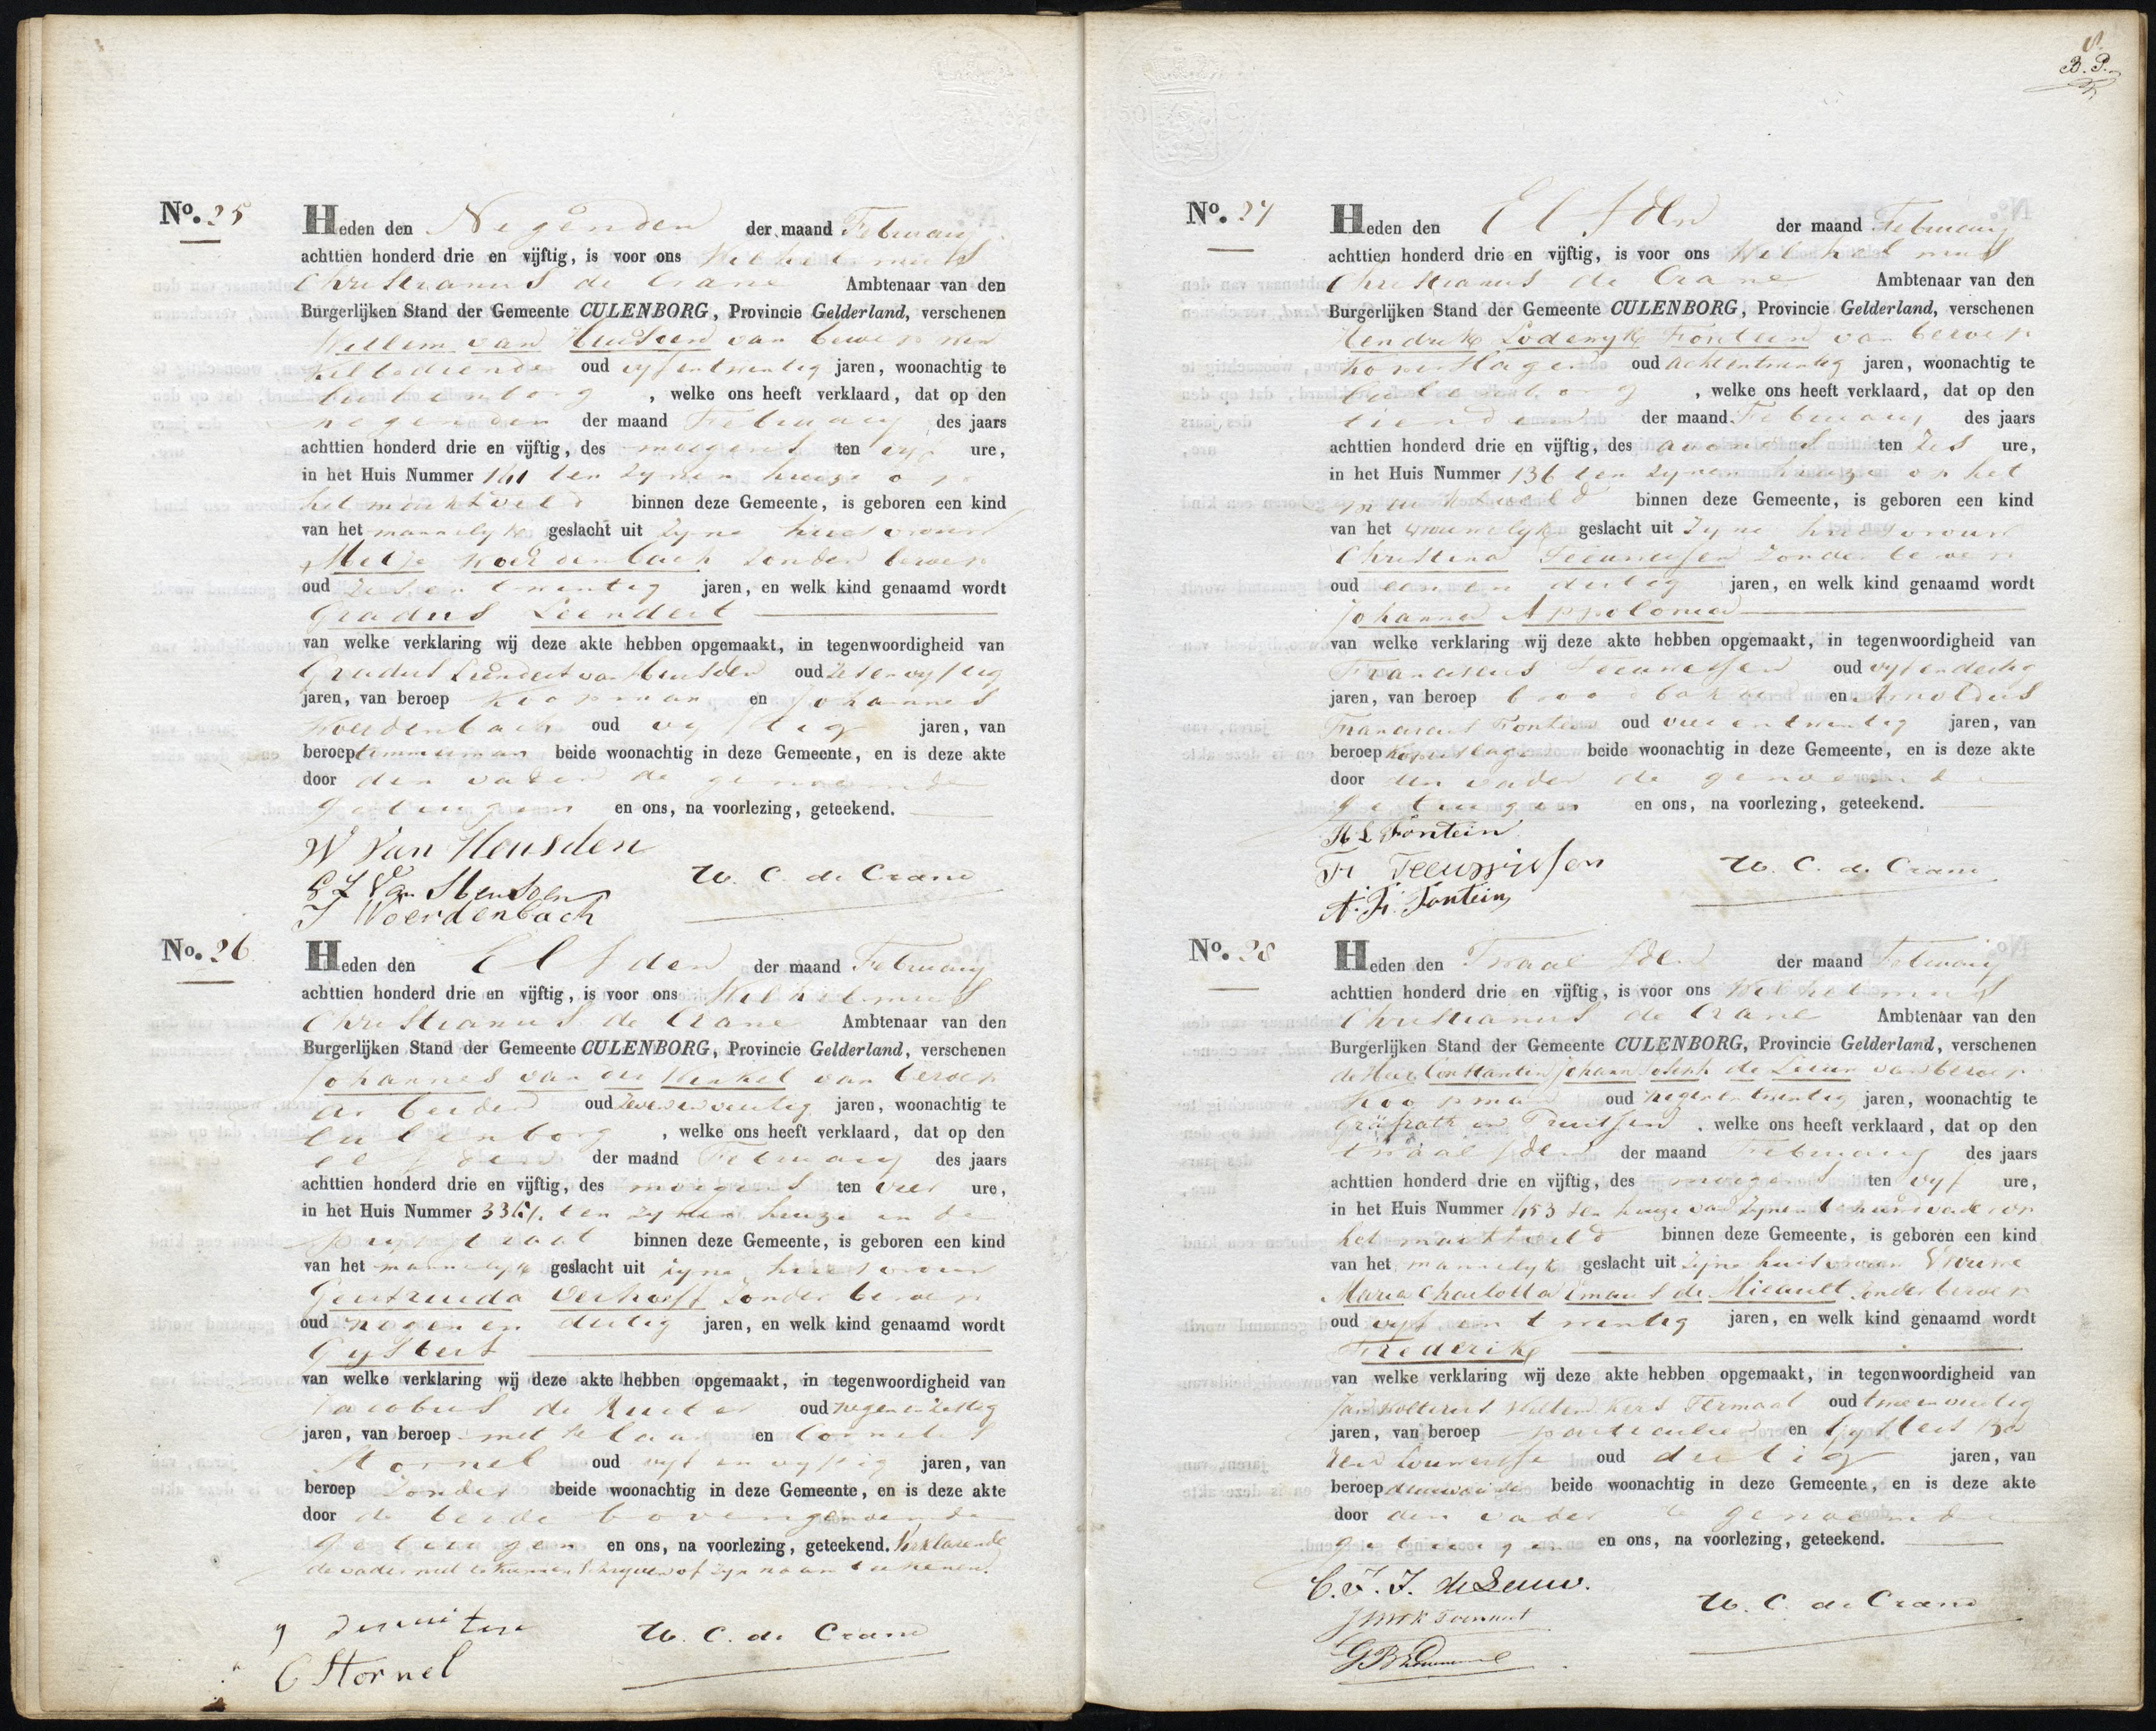 No. 25
Heden den Negenden der maand February
achttien honderd drie en vijftig, is voor ons Wilhelmus
Christianus de Crane Ambtenaar van den
Burgerlijken Stand der Gemeente CULENBORG, Provincie Gelderland, verschenen
Willem van Heusden van beroep
oud vyf en twintig jaren, woonachtig te
Culenborg, welke ons heeft verklaard, dat op den
negenden der maand February des jaars
achttien honderd drie en vijftig, des morgens ten vyf ure,
in het Huis Nummer ten zynen huize op
het marktveld binnen deze Gemeente, is geboren een kind
van het mannelyk geslacht uit zyne huisvrouw
Metje Woerdenbach zonder beroep
oud zes en twintig jaren, en welk kind genaamd wordt
Gradus Leendert
van welke verklaring wij deze akte hebben opgemaakt, in tegenwoordigheid van
Gradus Leendert van Heusden oud zes en vyftig
jaren, van beroep Koopman en Johannes
Woerdenbach oud vyftig jaren, van
beroep timmerman beide woonachtig in deze Gemeente, en is deze akte
door den vader de genoemde
getuigen en ons, na voorlezing, geteekend.
W Van Heusden
G L Van Heusden
J Woerdenbach
W. C. de Crane
No. 26
Heden den Elfden der maand February
achttien honderd drie en vijftig, is voor ons Wilhelmus
Christianus de Crane Ambtenaar van den
Burgerlijken Stand der Gemeente CULENBORG, Provincie Gelderland, verschenen
Johannes van den Kerkel van beroep
arbeider oud zeven en veertig jaren, woonachtig te
Culenborg, welke ons heeft verklaard, dat op den
elfden der maand February des jaars
achttien honderd drie en vijftig, des morgens ten vier ure,
in het Huis Nummer ten zynen huize in de
binnen deze Gemeente, is geboren een kind
van het mannelyk geslacht uit zyne huisvrouw
Geertruida Verhoeff zonder beroep
oud negen en dertig jaren, en welk kind genaamd wordt
Gysbert
van welke verklaring wij deze akte hebben opgemaakt, in tegenwoordigheid van
Jacobus de Ruiter oud negen en zestig
jaren, van beroep metselaar en Cornelis
Stornel oud vyf en vyftig jaren, van
beroep Zonder beide woonachtig in deze Gemeente, en is deze akte
door de beide bovengenoemde
getuigen en ons, na voorlezing, geteekend. Verklarende
de vader niet te kunnen schryven of zyn naam teekenen.
J de ruiter
C Stornel
W. C. de Crane
B. P.
No. 27
Heden den Elfden der maand February
achttien honderd drie en vijftig, is voor ons Wilhelmus
Christianus de Crane Ambtenaar van den
Burgerlijken Stand der Gemeente CULENBORG, Provincie Gelderland, verschenen
Hendrik Lodewyk Fontein van beroep
Koperslager oud acht en twintig jaren, woonachtig te
Culenborg, welke ons heeft verklaard, dat op den
tienden der maand February des jaars
achttien honderd drie en vijftig, des avonds ten zes ure,
in het Huis Nummer 136 ten zynen huize op het
marktveld binnen deze Gemeente, is geboren een kind
van het vrouwelyk geslacht uit zyne huisvrouw
Christina Teeuwissen zonder beroep
oud een en dertig jaren, en welk kind genaamd wordt
Johanna Appolonia
van welke verklaring wij deze akte hebben opgemaakt, in tegenwoordigheid van
Franciscus Teeuwissen oud vyf en dertig
jaren, van beroep broodbakker en Arnoldus
Franciscus Fontein oud vier en twintig jaren, van
beroep koperslager beide woonachtig in deze Gemeente, en is deze akte
door den vader de genoemde
getuigen en ons, na voorlezing, geteekend.
H L Fontein
Fr Teeuwissen
A. Fr. Fontein
W. C. de Crane
No. 28
Heden den Twaalfden der maand February
achttien honderd drie en vijftig, is voor ons Wilhelmus
Christianus de Crane Ambtenaar van den
Burgerlijken Stand der Gemeente CULENBORG, Provincie Gelderland, verschenen
de Heer Constantin Johann Joseph de Leeuw van beroep
Koopman oud negen en twintig jaren, woonachtig te
Gräfrath in Pruissen, welke ons heeft verklaard, dat op den
twaalfden der maand February des jaars
achttien honderd drie en vijftig, des morgens ten vyf ure,
in het Huis Nummer 153 ten huize van zynen behuwdvader op
het marktveld binnen deze Gemeente, is geboren een kind
van het mannelyk geslacht uit zyne huisvrouw Vrouwe
Maria Charlotta Emaus de Micault zonder beroep
oud vyf en twintig jaren, en welk kind genaamd wordt
Frederik
van welke verklaring wij deze akte hebben opgemaakt, in tegenwoordigheid van
Jan oud twee en veertig
jaren, van beroep particulier en Gysbert
oud dertig jaren, van
beroep beide woonachtig in deze Gemeente, en is deze akte
door den vader de genoemde
getuigen en ons, na voorlezing, geteekend.
C. J. J. de Leeuw.
W. C. de Crane